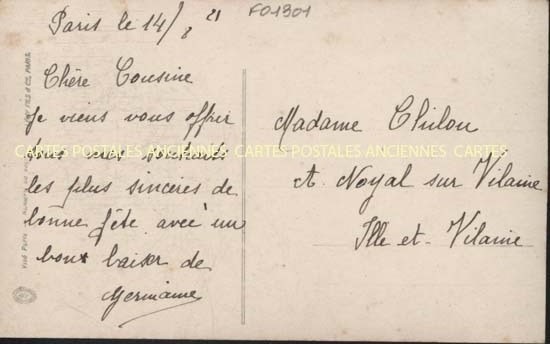 Paris le 14/8 21
F01301
Chère Cousine
Je viens vous offrir
tous mes souhaits
les plus sincères de
bonne fête avec un
bon baiser de
Germaine
Madame Chilou
A. Noyal sur Vilaine
Ille et-Vilaine
CARTES POSTALES ANCIENNES CARTES POSTALES ANCIENNES CARTES